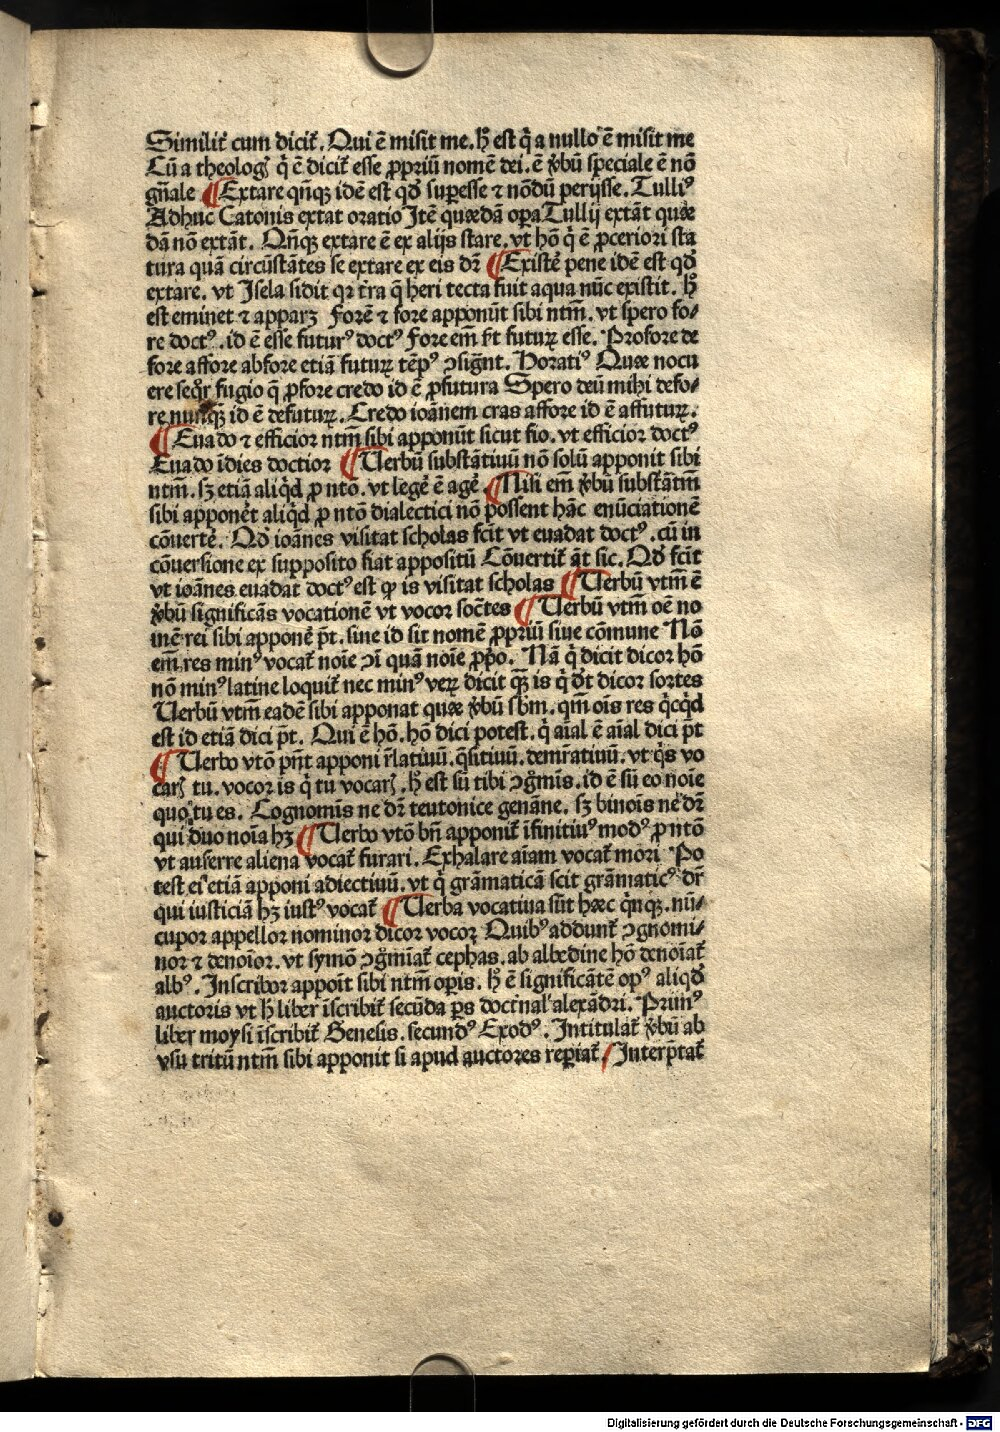 Similit̃ cum dicit̃. Qui ē misit me. h̄ est q̇ a nullo ē misit me
Cū a theologꝭ q̇ ē dicit̃ esse ꝓpriū nomē dei. ē v̄bū speciale ē nō
gn̄ale ¶ Extare qñqꝫ idē est qd̄ supesse ⁊ nōdū perijsse. Tulliꝰ
Adhuc Catonis extat oratio Itē quædā opa Tullij extāt quæ
dā nō extāt. Qñqꝫ extare ē ex alijs stare. vt hō q̇ ē ꝓceriori sta
tura quā circūstātes se extare ex eis dr̄ ¶ Existe᷑ pene idē est qd̄
extare. vt Isela sidit qꝛ tr̄a q̄ heri tecta fuit aqua nūc existit. h̄
est eminet ⁊ apparꝫ Forē ⁊ fore apponūt sibi ntm̄. vt spero fo⸗
re doctꝰ. id ē esse futurꝰ doctꝰ Fore em̄ fit futuꝝ esse. Profore de
fore affore abfore etiā futuꝝ tēpꝰ ꝯsigñt. Horatiꝰ Quæ nocu
ere seq̄r fugio q̄ ꝓfore credo id ē ꝓfutura Spero deū mihi defo⸗
re nunqꝫ id ē defutuꝝ. Credo ioānem cras affore id ē affutuꝝ.
¶ Euado ⁊ efficior ntm̄ sibi apponūt sicut fio. vt efficior doctꝰ
Euado īdies doctior ¶ Uerbū substātiuū nō solū apponit sibi
ntm̄. sꝫ etiā aliq̇d ꝓ nto. vt lege᷑ ē age᷑. ¶ Nisi em̄ v̄bū substātm̄
sibi appone᷑t aliq̇d ꝓ ntō dialectici nō possent hāc enūciationē
cōuerte᷑. Qd̄ ioānes visitat scholas fcīt vt euadat doctꝰ. cū in
cōuersione ex supposito fiat appositū Cōuertit̃ āt sic. Qd̄ fcīt
vt ioānes euadat doctꝰ est ꝙ is visitat scholas ¶ Uerbū vtm̄ ē
v̄bū significās vocationē vt vocor socītes ¶ Uerbū vtm̄ oē no
mē rei sibi appone᷑ pt̄. siue id sit nomē ꝓpriū siue cōmune Nō
em̄ res minꝰ vocat̃ noīe ꝯī quā noīe ꝓpo. Nā q̇ dicit dicor hō
nō minꝰ latine loquit̃ nec minꝰ veꝝ dicit qꝫ is q̇ dt̄ dicor sortes
Uerbū vtm̄ eadē sibi apponat quæ v̄bū sbm̄. qm̄ oīs res q̇cq̇d
est id etiā dici pt̄. Qui ē hō. hō dici potest. q̇ aīal ē aīal dici pt̄
¶ Uerbo vtō pn̄t apponi r̄latiuū. q̄sitiuū. demr̄atiuū. vt q̇s vo
carꝭ tu. vocor is q̇ tu vocarꝭ. h̄ est sū tibi ꝯgm̄is. id ē sū eo noīe
quo tu es. Cognomīs ne dr̄ teutonice genāne. sꝫ binoīs ne dr̄
qui duo noīa hꝫ ¶ Uerbo vtō bn̄ apponit̃ īfinitiuꝰ modꝰ ꝓ ntō
vt auferre aliena vocat̃ furari. Exhalare aīam vocat̃ mori Po
test ei etiā apponi adiectiuū. vt q̇ grāmaticā scit grāmaticꝰ dr̄
qui iusticiā hꝫ iustꝰ vocat̃ ¶ Uerba vocatiua sūt hæc q̇nqꝫ. nū⸗
cupor appellor nominor dicor vocoꝝ Quibꝰ addunt̃ ꝯgnomi⸗
nor ⁊ denoīor. vt symō ꝯgm̄iat̃ cephas. ab albedine hō denoīat̃
albꝰ. Inscribor appoīt sibi ntm̄ opīs. h̄ ē significātē opꝰ aliqd̄
auctoris vt h̄ liber īscribit̃ secūda ps̄ doctrīnal alexādri. Primꝰ
liber moysi īscribit̃ Genesis. secundꝰ Exodꝰ. Intitulat̃ v̄bū ab
vsu tritū ntm̄ sibi apponit si apud auctores repiat̃. Interptat̃
Digitalisierung gefördert durch die Deutsche Forschungsgemeinschaft - DFG